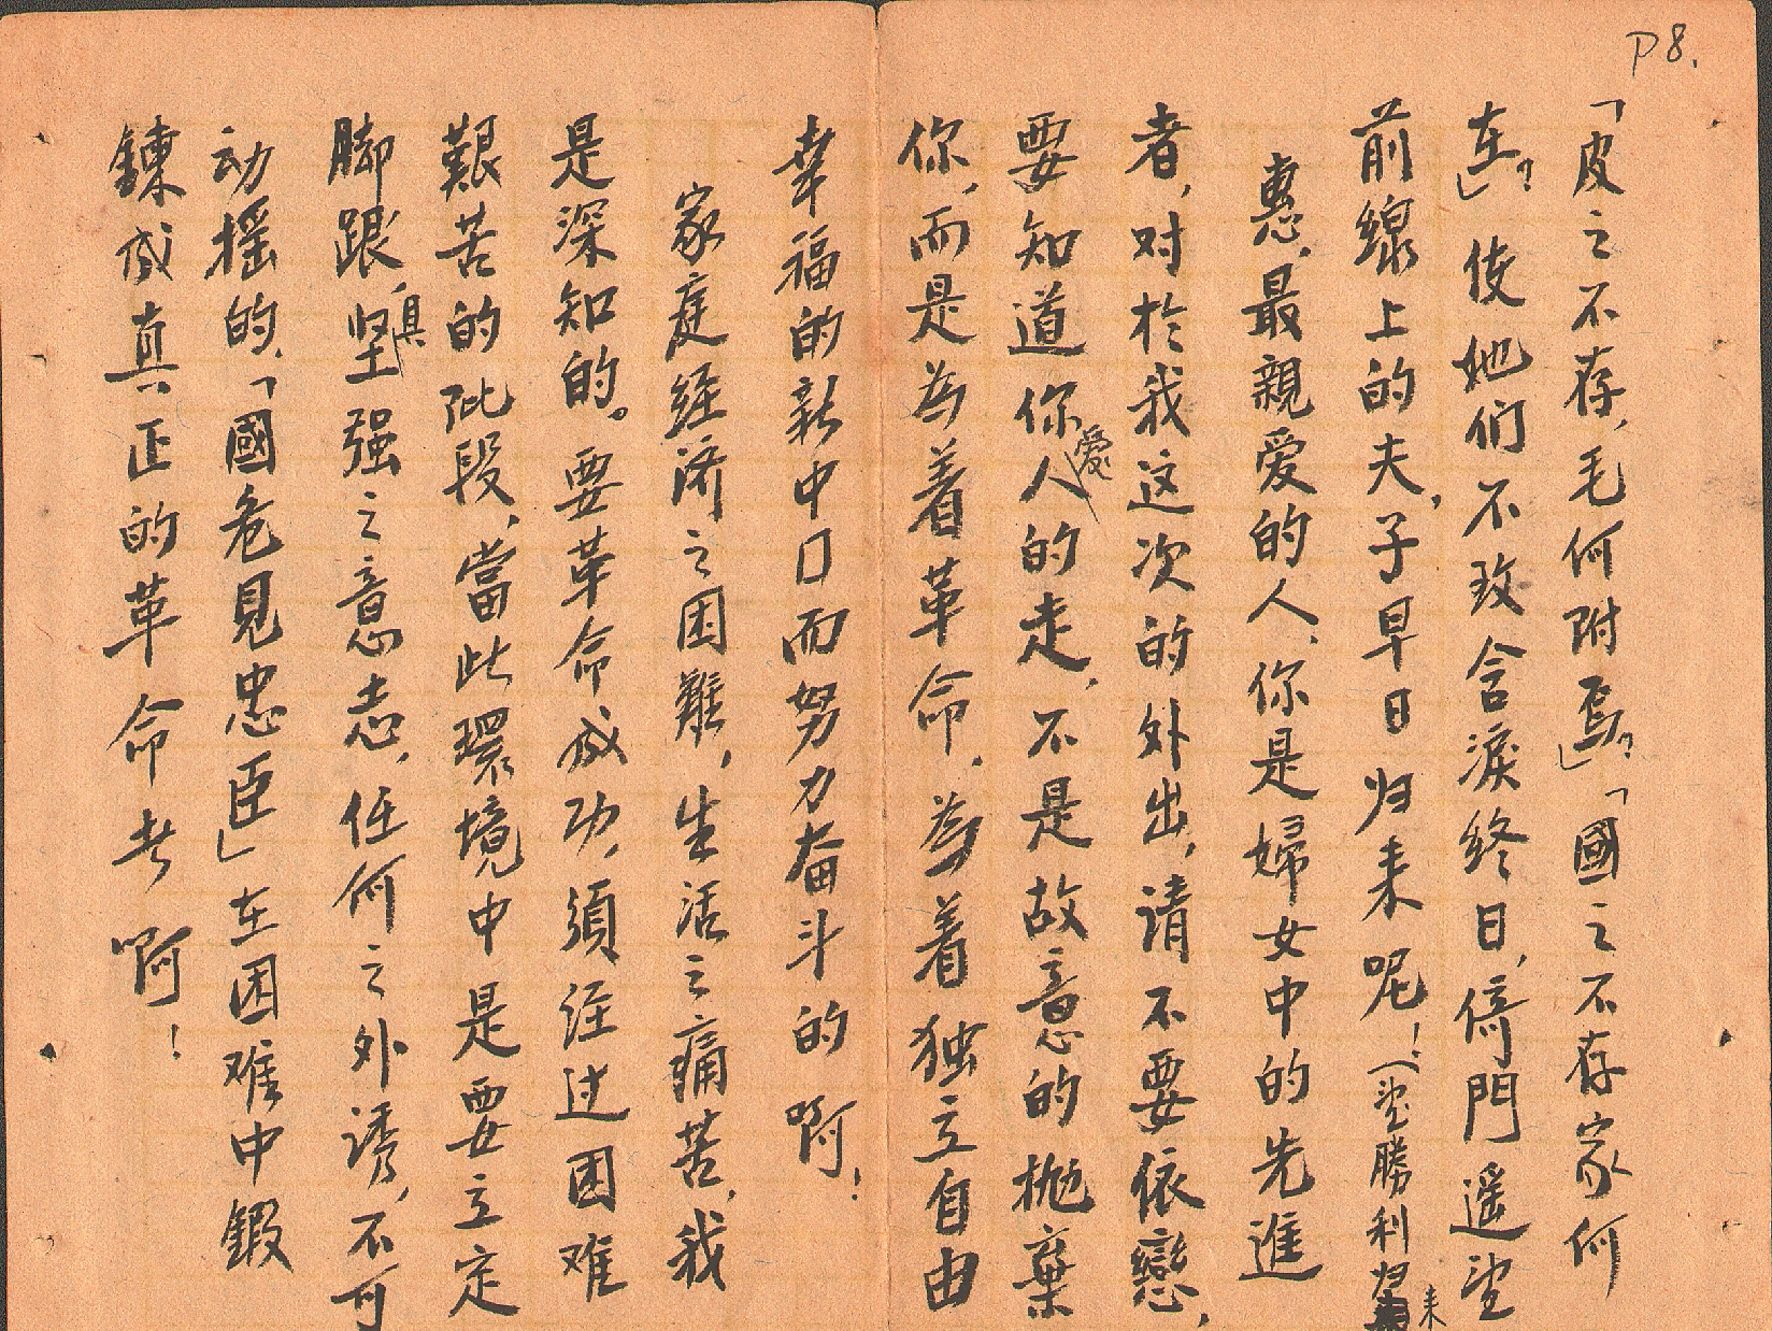 P8.
「皮之不存,毛何附焉?」「國之不存家何
在?」使她们不致含淚終日,倚門遥望
前線上的夫,子早日归来呢!(望勝利归来
惠,最親爱的人,你是婦女中的先進
者,对於我这次的外出,请不要依戀,
要知道你爱人的走,不是故意的抛棄
你,而是為着革命,為着独立自由
幸福的新中口而努力奋斗的啊!
家庭经济之困難,生活之痛苦,我
是深知的。要革命成功,須经过困难
艱苦的阶段,當此環境中是要立定
脚跟,具坚强之意志,任何之外誘,不可
动摇的,「國危見忠臣」在困难中鍛
鍊成真正的革命者啊!